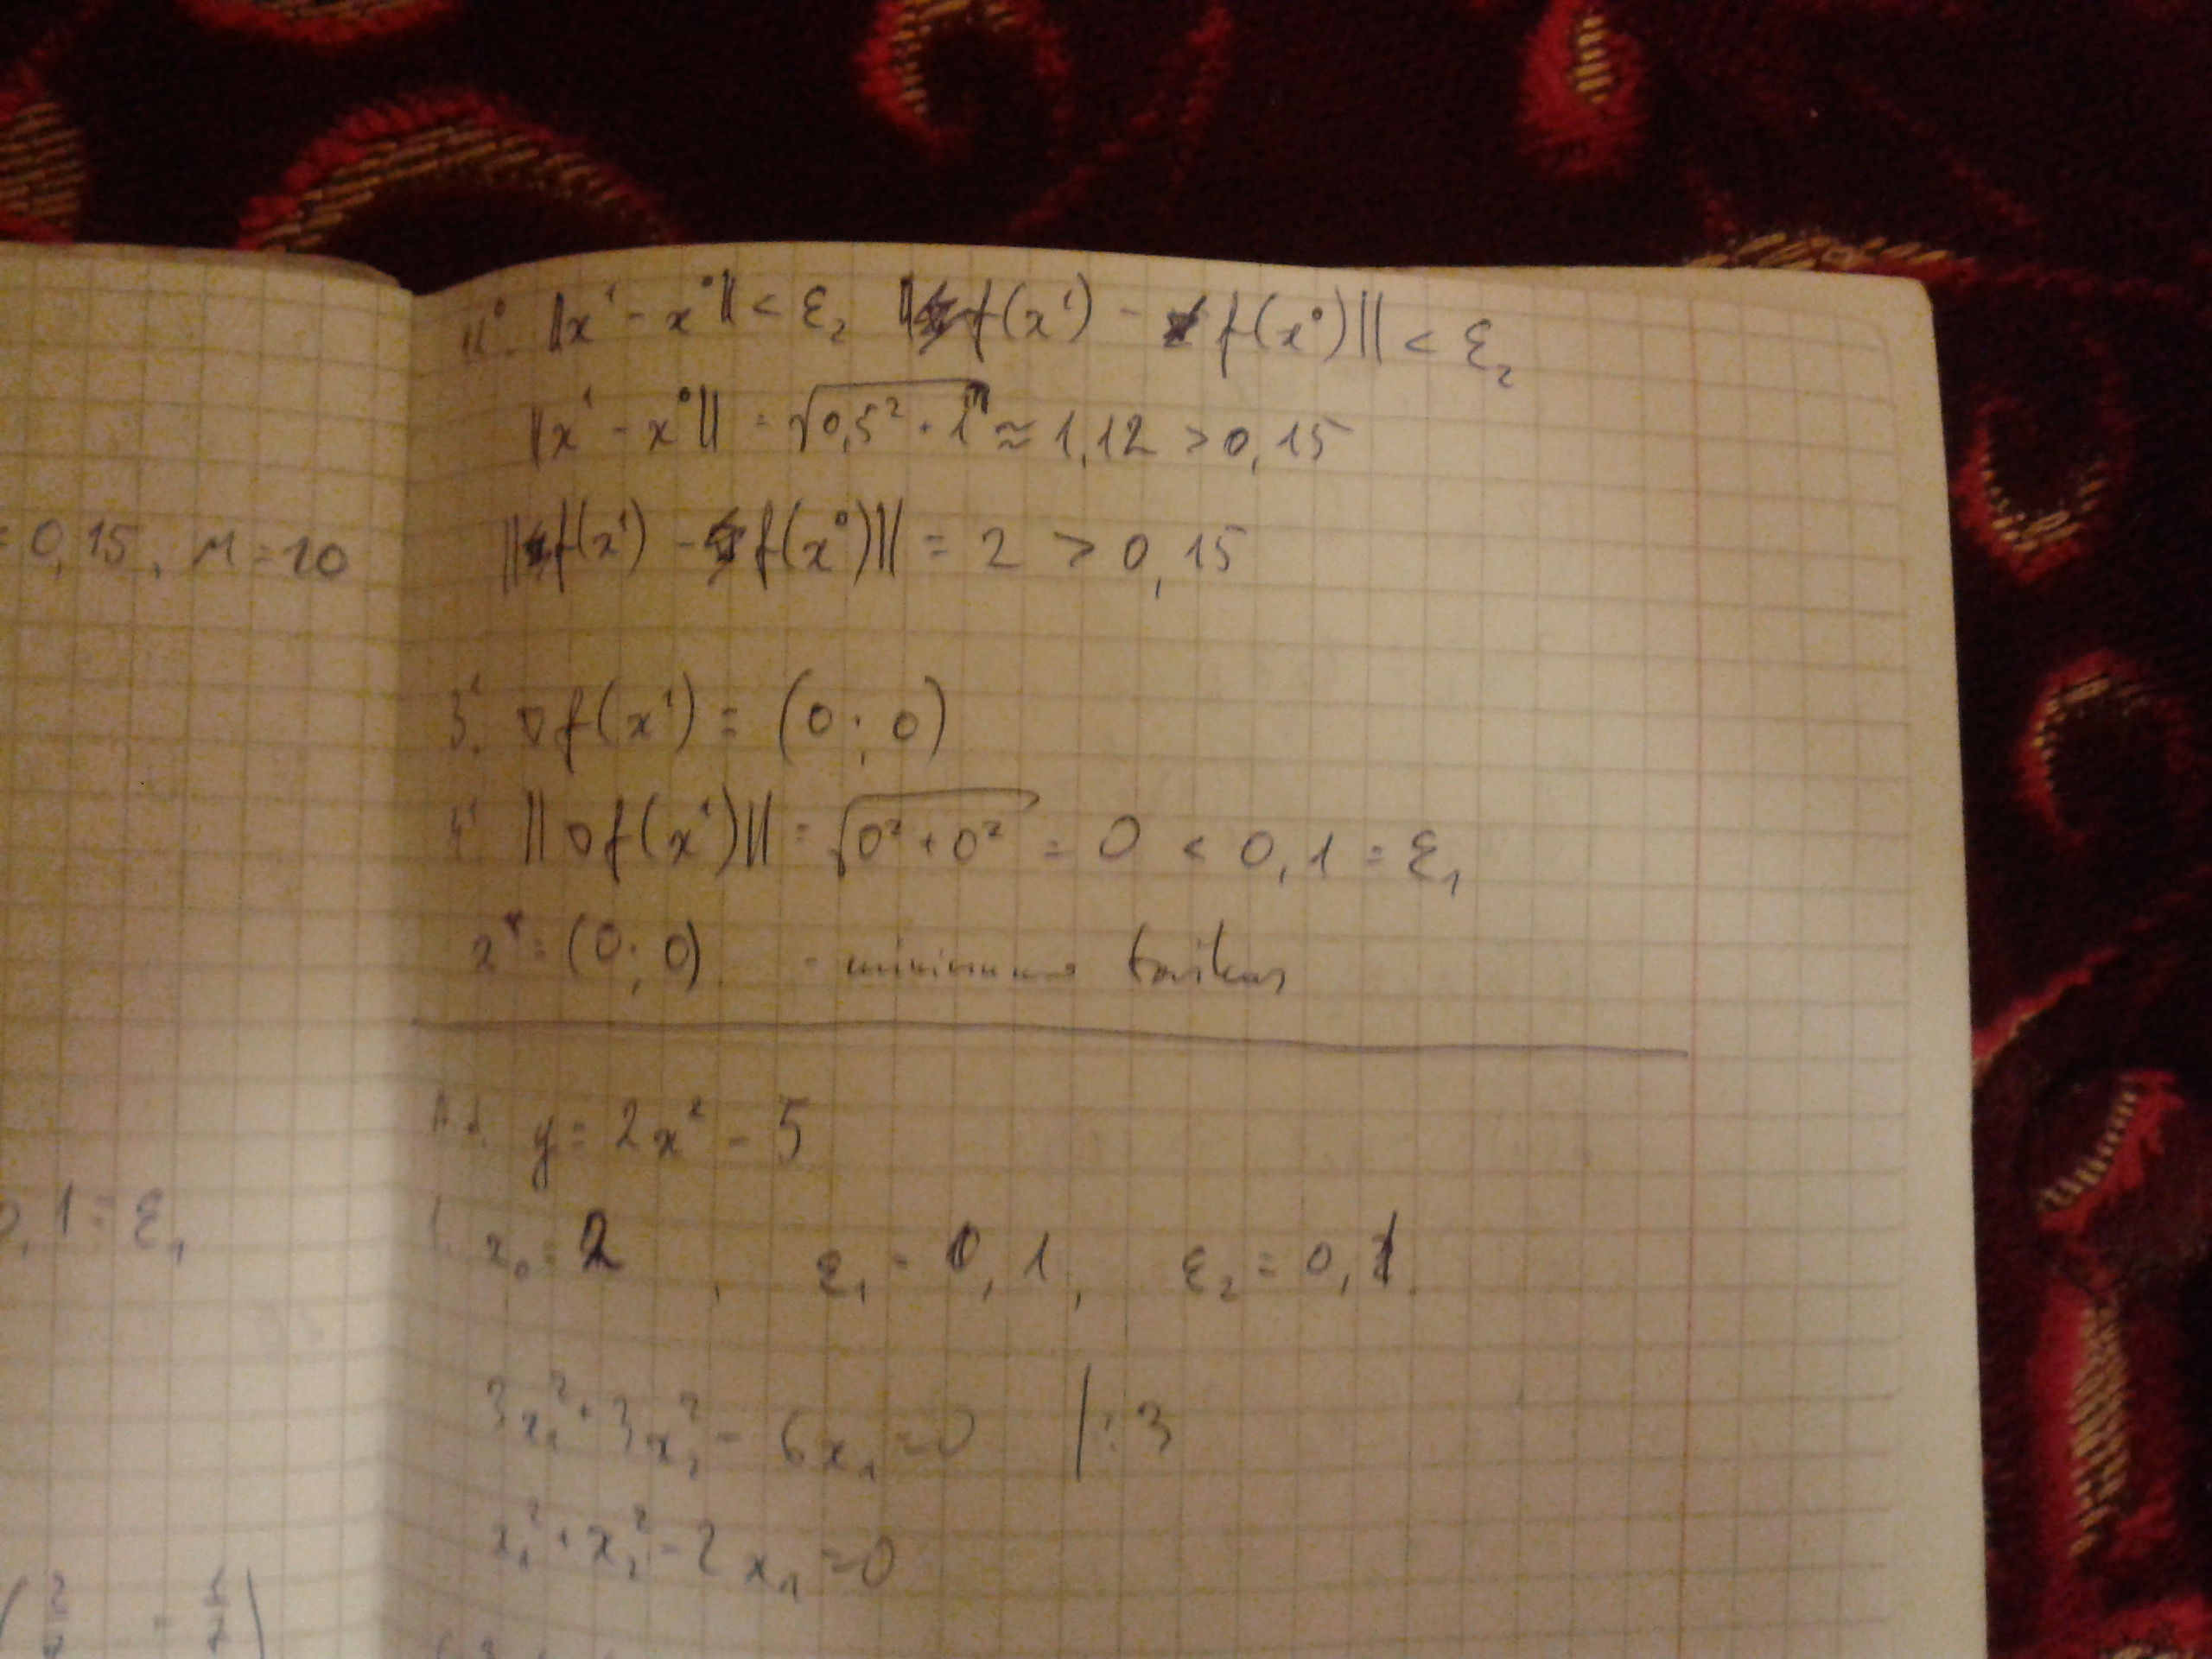 = 0,15, M = 10
0,1 = ε₁
11⁰. ||x¹ - x⁰|| < ε₂ ||f(x¹) - f(x⁰)|| < ε₂
||x¹ - x⁰|| = √(0,5² + 1) ≈ 1,12 > 0,15
||f(x¹) - f(x⁰)|| = 2 > 0,15
3¹. ∇f(x¹) = (0; 0)
4¹. ||∇f(x¹)|| = √(0² + 0²) = 0 < 0,1 = ε₁
x* = (0; 0) - minimumo taškas
y = 2x² - 5
1. x₀ = 2, ε₁ = 0,1, ε₂ = 0,1.
3x₁² + 3x₂² - 6x₁ = 0 |:3
x₁² + x₂² - 2x₁ = 0